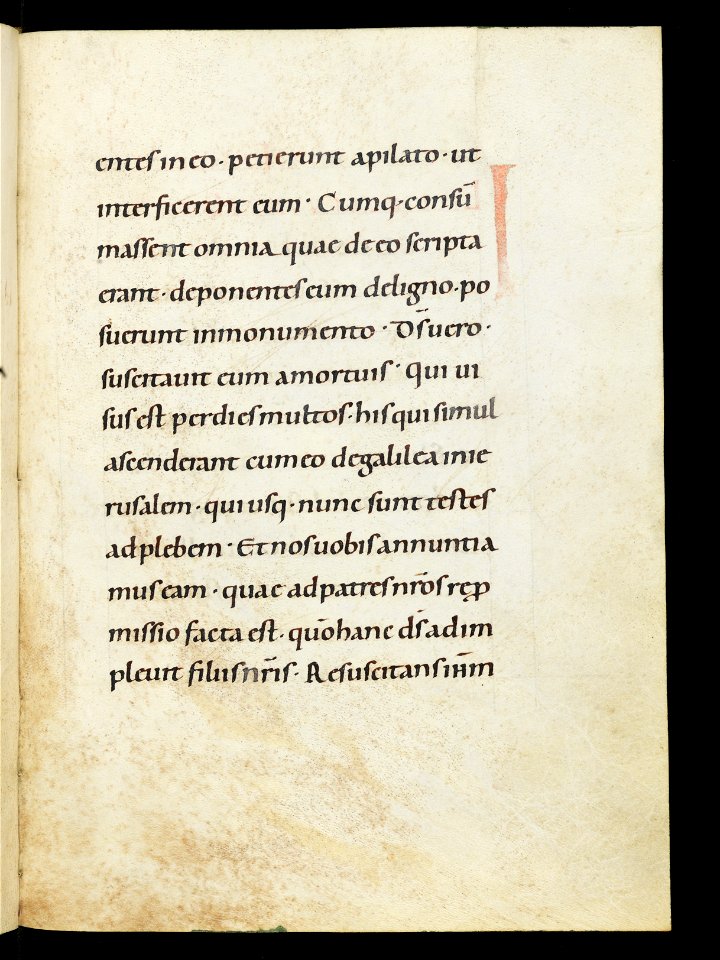 entes in eo · petierunt apilato · ut
interficerent eum · Cumq· consū
massent omnia quae de eo scripta
erant · deponentes eum deligno · po
suerunt inmonumento · D̄s uero ·
suscitauit eum amortuis · Qui ui
sus est perdies multos · his qui simul
ascenderant cum eo degalilea inie
rusalem · qui usq · nunc sunt testes
adplebem · Et nos uobis annuntia
mus eam · quae adpatres nr̄os rep̱ro
missio facta est · quō hanc d̄s adim
pleuit filiis nr̄is · Resuscitans ih̄m